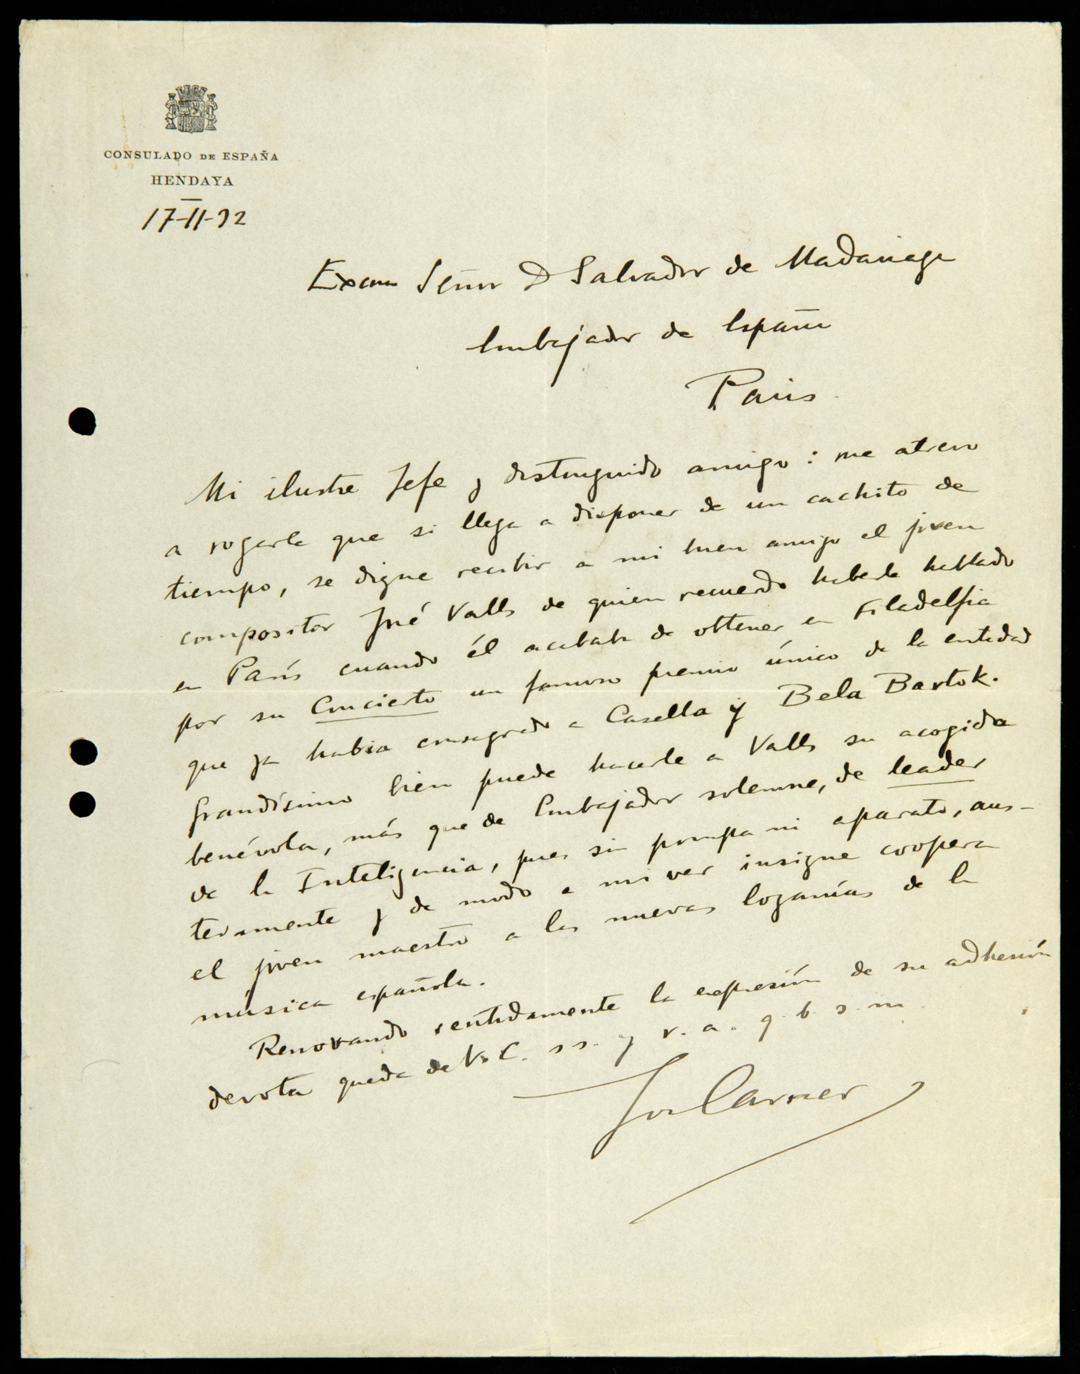 CONSULADO DE ESPAÑA
HENDAYA
17-II-32
Excmo Señor D Salvador de Madariaga
Embajador de España
París.
Mi ilustre Jefe y distinguido amigo: me atrevo
a rogarle que si llega a disponer de un cachito de
tiempo, se digne recibir a mi buen amigo el joven
compositor José Valls de quien recuerdo haberle hablado
en París cuando él acababa de obtener en Filadelfia
por su Concierto un famoso premio único de la entidad
que ya había consagrado a Casella y Bela Bartok.
Grandísimo bien puede hacerle a Valls su acogida
benévola, más que de Embajador solemne, de leader
de la Inteligencia, pues sin pompa ni aparato, aus-
teramente y de modo a mi ver insigne coopera
el joven maestro a las nuevas lozanías de la
música española.
Renovando rentidamente la expresión de su adhesión
devota queda de V. E. s s. y r. a. q. b. s. m
Jos Carner